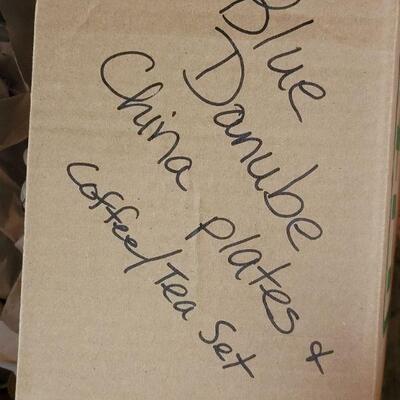 Blue
Danube
China plates &
Coffee/Tea Set